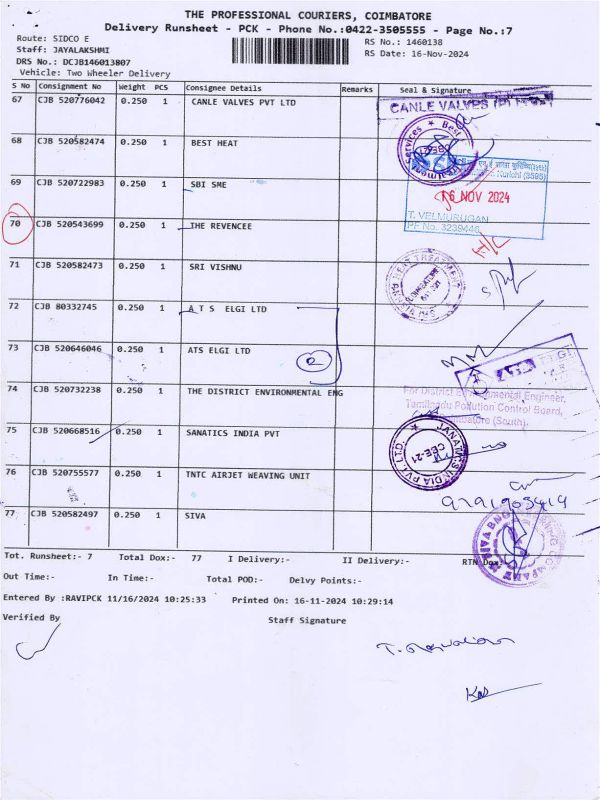 THE PROFESSIONAL COURIERS, COIMBATORE
Delivery Runsheet - PCK - Phone No.:0422-3505555 - Page No.:7
Route: SIDCO E
RS No.: 1460138
Staff: JAYALAKSHMI
RS Date: 16-Nov-2024
DRS No.: DCJB146013807
Vehicle: Two Wheeler Delivery
S No Consignment No Weight PCS Consignee Details Remarks Seal & Signature
67 CJB 520776042 0.250 1 CANLE VALVES PVT LTD
CANLE VALVES (P)
68 CJB 520582474 0.250 1 BEST HEAT
69 CJB 520722983 0.250 1 SBI SME
16 NOV 2024
T. VELMURUGAN
PF No. 3239446
70 CJB 520543699 0.250 1 THE REVENCEE
71 CJB 520582473 0.250 1 SRI VISHNU
72 CJB 80332745 0.250 1 A T S ELGI LTD
73 CJB 520646046 0.250 1 ATS ELGI LTD
2
74 CJB 520732238 0.250 1 THE DISTRICT ENVIRONMENTAL ENG
For District Environmental Engineer,
Tamilnadu Pollution Control Board,
Coimbatore (South).
75 CJB 520668516 0.250 1 SANATICS INDIA PVT
JANATICS INDIA PVT. LTD.
CBE-21
76 CJB 520755577 0.250 1 TNTC AIRJET WEAVING UNIT
77 CJB 520582497 0.250 1 SIVA
Tot. Runsheet:- 7 Total Dox:- 77 I Delivery:- II Delivery:- RTN Dox:-
Out Time:- In Time:- Total POD:- Delvy Points:-
Entered By :RAVIPCK 11/16/2024 10:25:33 Printed On: 16-11-2024 10:29:14
Verified By Staff Signature